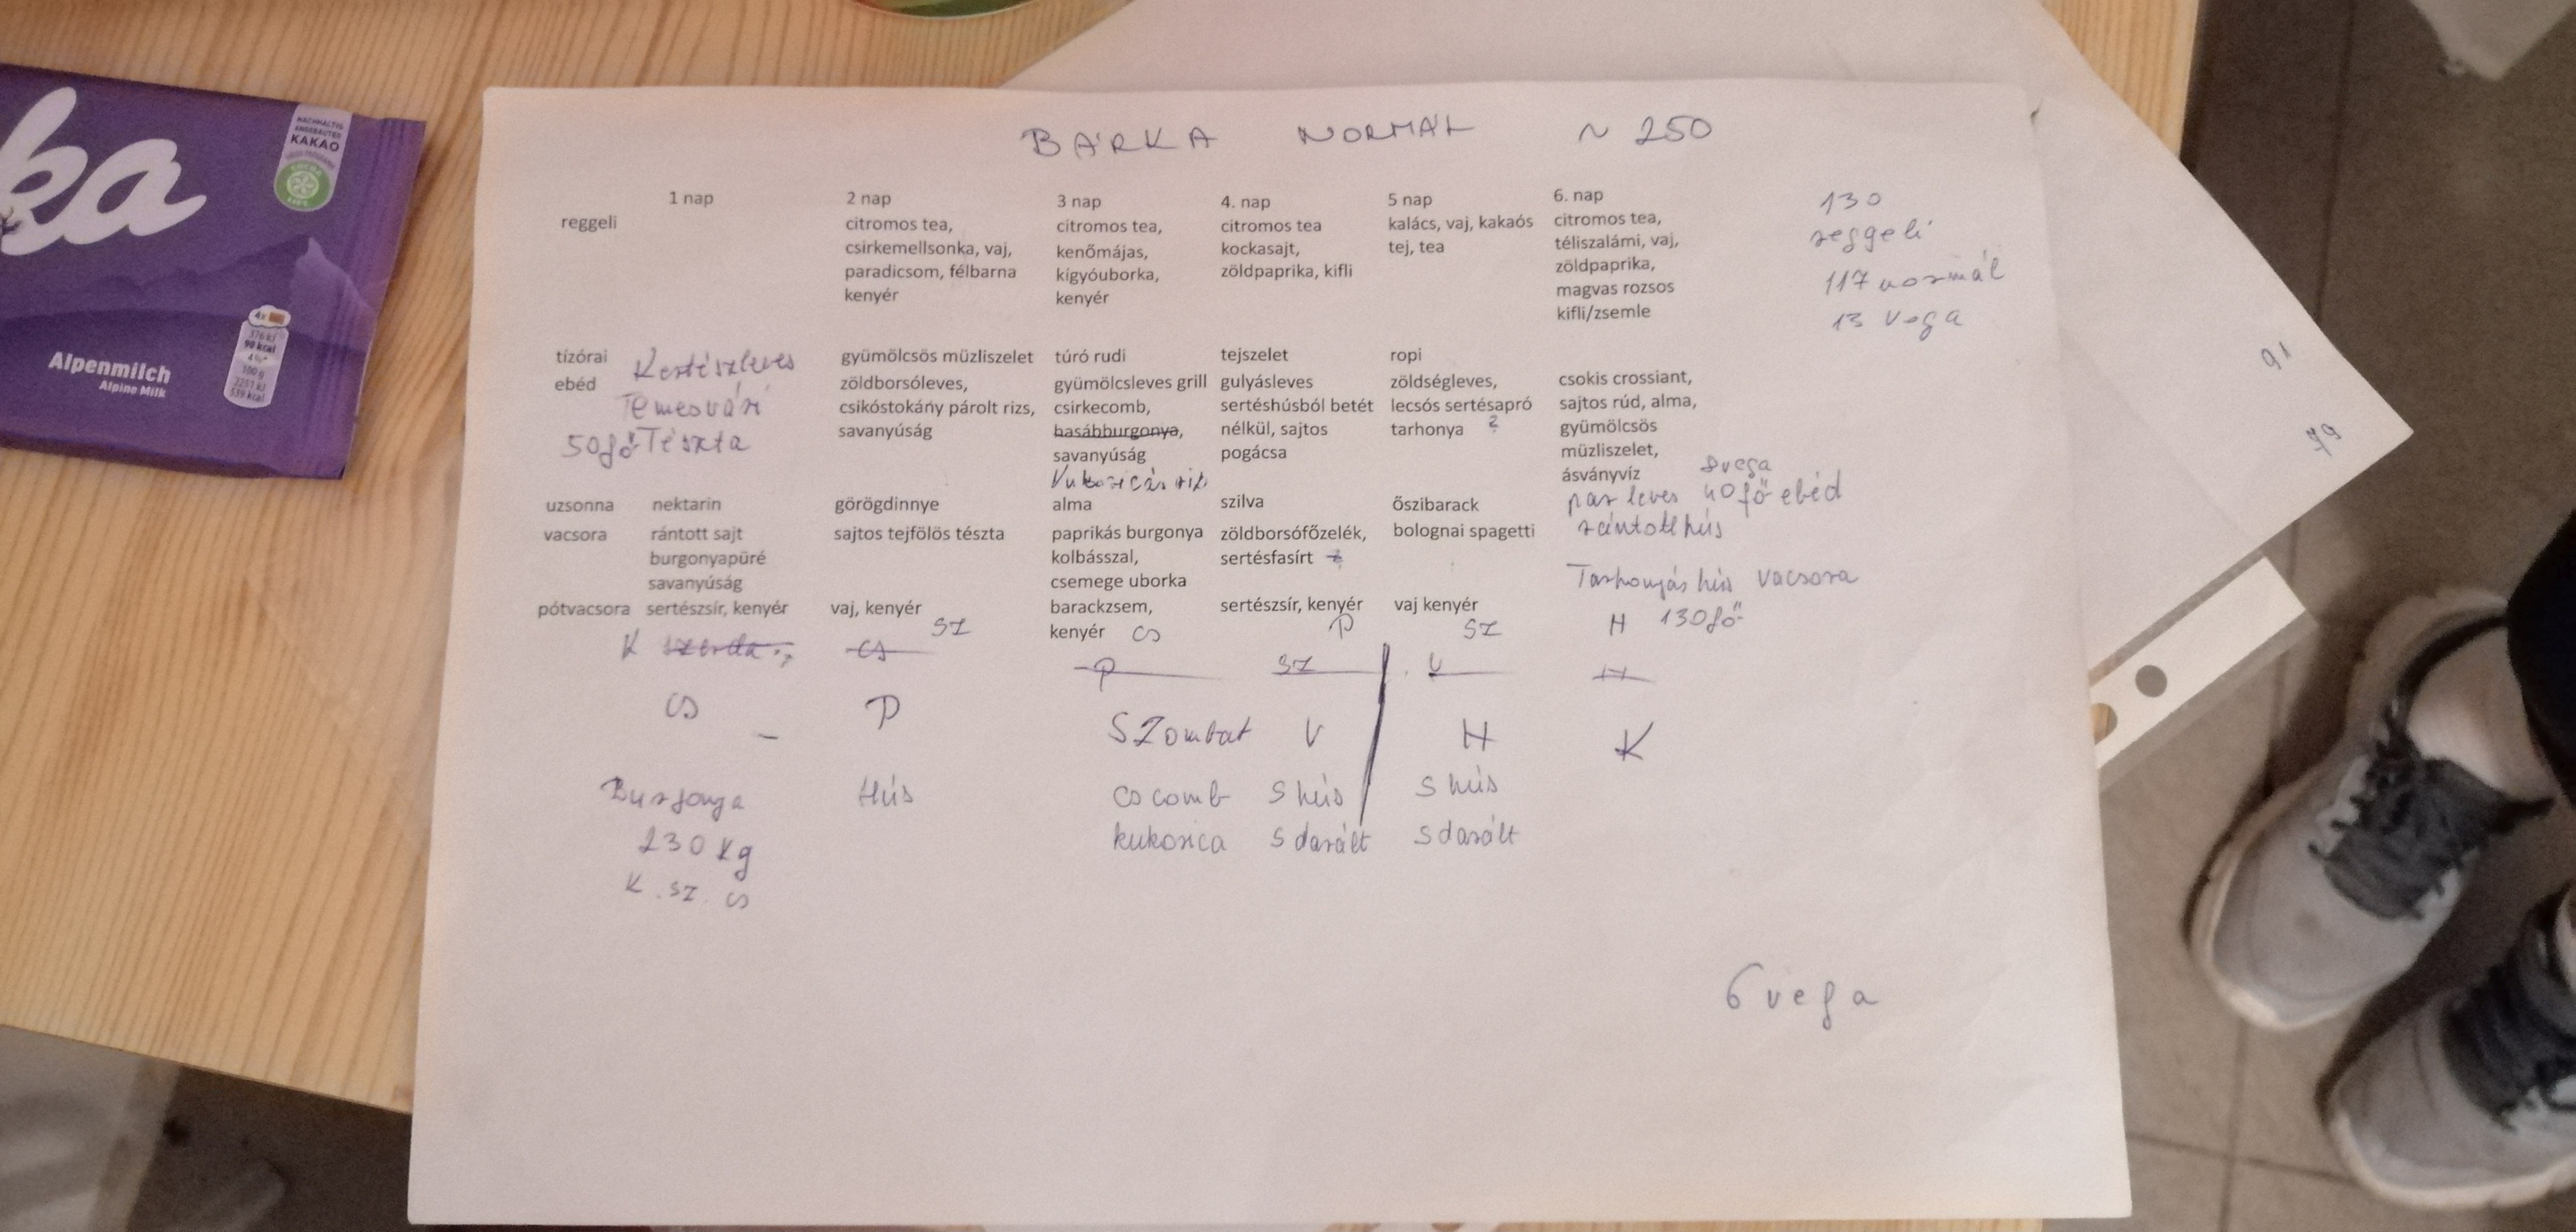 BÁRKA NORMÁL ~ 250
1 nap 2 nap 3 nap 4. nap 5 nap 6. nap 130
reggeli citromos tea, citromos tea, citromos tea kalács, vaj, kakaós citromos tea, reggeli
csirkemellsonka, vaj, kenőmájas, kockasajt, tej, tea téliszalámi, vaj,
paradicsom, félbarna kígyóuborka, zöldpaprika, kifli zöldpaprika, 117 normál
kenyér kenyér magvas rozsos
kifli/zsemle 13 vega
tízórai Kertészleves gyümölcsös müzliszelet túró rudi tejszelet ropi
ebéd zöldborsóleves, gyümölcsleves grill gulyásleves zöldségleves, csokis crossiant,
Temesvári csikóstokány párolt rizs, csirkecomb, sertéshúsból betét lecsós sertésapró sajtos rúd, alma,
50 fő Tészta savanyúság hasábburgonya, nélkül, sajtos tarhonya ? gyümölcsös
savanyúság pogácsa müzliszelet,
Kukoricás rizs ásványvíz 8 vega
uzsonna nektarin görögdinnye alma szilva őszibarack par leves 40 fő ebéd
vacsora rántott sajt sajtos tejfölös tészta paprikás burgonya zöldborsófőzelék, bolognai spagetti rántott hús
burgonyapüré kolbásszal, sertésfasírt
savanyúság csemege uborka Tarhonyás hús vacsora
pótvacsora sertészsír, kenyér vaj, kenyér barackzsem, sertészsír, kenyér vaj kenyér
SZ kenyér CS P SZ H 130 fő
K szerda CS P SZ V H
CS P SZombat V H K
Burgonya Hús cs comb S hús S hús
230 kg kukorica S darált S darált
K. SZ. CS
6 vega
91
79
ka
NACHHALTIG
ANGEBAUTER
KAKAO
COCOA
LIFE
Alpenmilch
Alpine Milk
4x
376 kJ
90 kcal
4%*
100 g
539 kcal